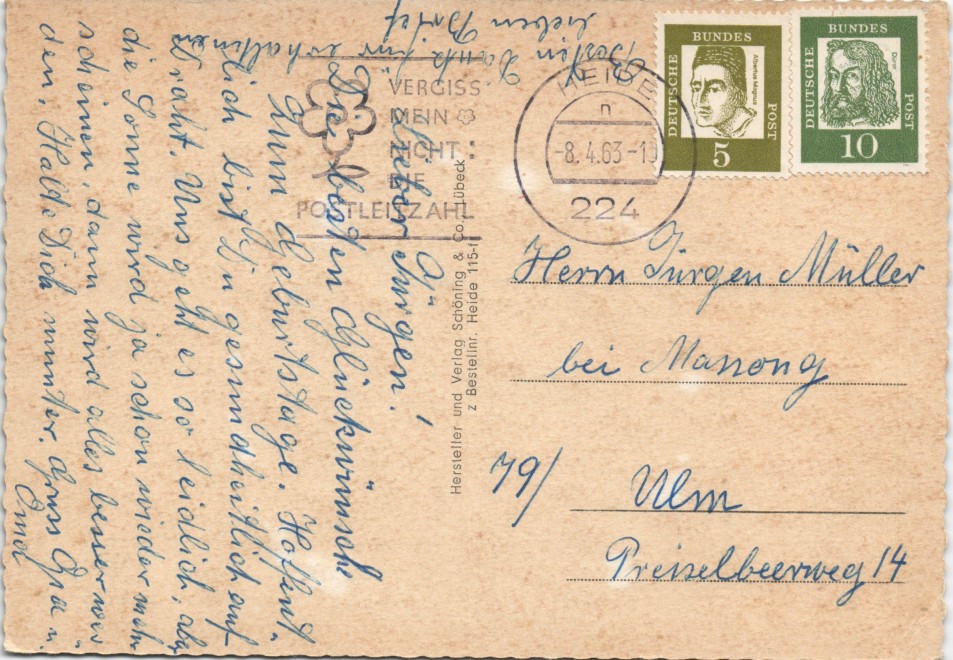 Lieber Jürgen!
Die besten Glückwünsche
zum Geburtstage. Hoffent-
lich bist Du gesundheitlich auf
Draht. Uns geht es so leidlich, aber
die Sonne wird ja schon wieder mehr
scheinen, dann wird alles besser wer-
den. Halte Dich munter. Gruss Opa u.
Oma
Besten Dank für erhaltenen
lieben Brief
VERGISS
MEIN
NICHT
DIE
POSTLEITZAHL
HEIDE
n
-8.4.63-10
224
DEUTSCHE BUNDES POST
Albertus Magnus
5
DEUTSCHE BUNDES POST
Dürer
10
Hersteller und Verlag Schöning & Co., Lübeck
z Bestellnr. Heide 115-f
Herrn Jürgen Müller
bei Massong
79/ Ulm
Preiselbeerweg 14